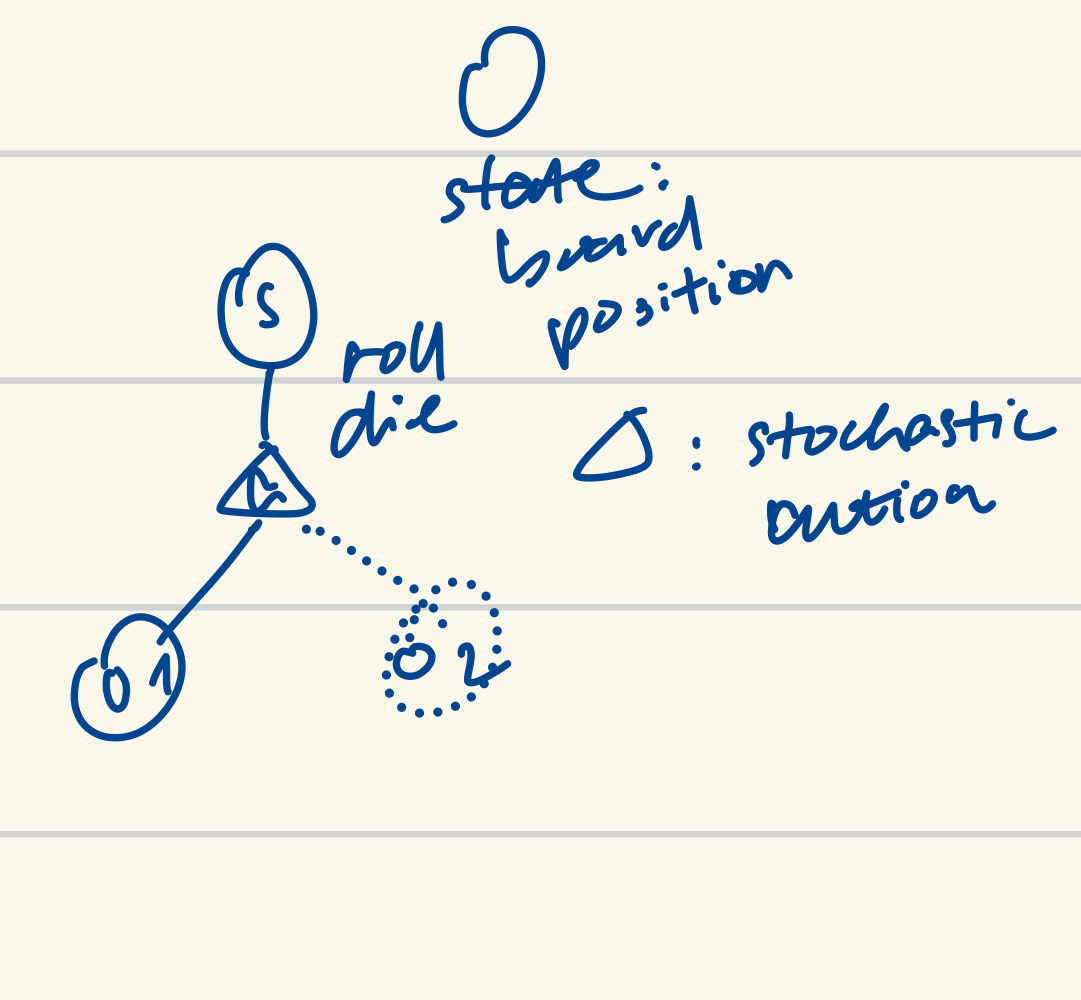 state:
board
position
S
roll
die
: stochastic
O 1
O 2